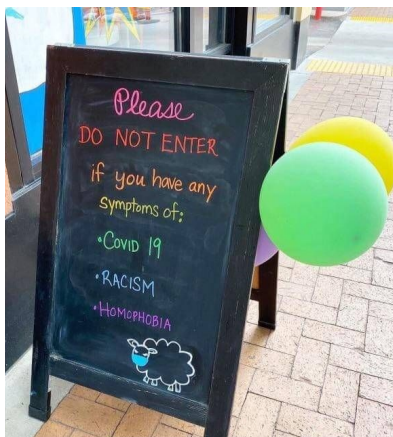 Please
DO NOT ENTER
if you have any
symptoms of:
•COVID 19
•RACISM
•HOMOPHOBIA